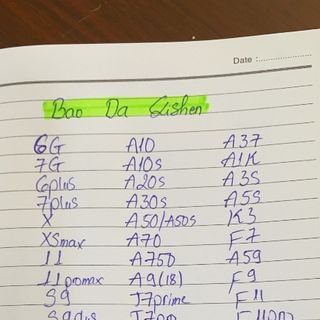 Date :
Bao Da Lishen
6G A10 A37
7G A10s A1K
6plus A20s A3S
7plus A30s A5S
X A50/A50s K3
XSmax A70 F7
11 A750 A59
11 promax A9(18) F9
S9 J7prime F11
S9plus J7pro F11pro